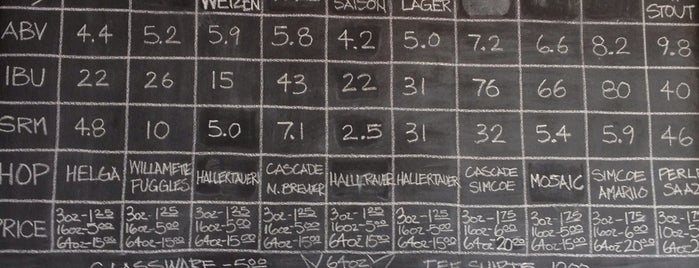 WEIZEN SAISON LAGER STOUT
ABV 4.4 5.2 5.9 5.8 4.2 5.0 7.2 6.6 8.2 9.8
IBU 22 26 15 43 22 31 76 66 80 40
SRM 4.8 10 5.0 7.1 2.5 31 32 5.4 5.9 46
HOP HELGA WILLAMETE HALLERTAUER CASCADE HALLERTAUER HALLERTAUER CASCADE MOSAIC SIMCOE PERLE
FUGGLES N.BREWER SIMCOE AMARILLO SAAZ
PRICE 3oz-1.25 3oz-1.25 3oz-1.25 3oz-1.25 3oz-1.25 3oz-1.25 3oz-1.75 3oz-1.75 3oz-1.75 3oz-1.75
16oz-5.00 16oz-5.00 16oz-5.00 16oz-5.00 16oz-5.00 16oz-5.00 16oz-6.00 16oz-5.00 16oz-6.00
64oz-15.00 64oz-15.00 64oz-15.00 64oz-15.00 64oz-15.00 64oz-15.00 64oz 20.00 64oz-15.00 64oz 20.00
GLASSWARE -5.00 64oz TEE SHIRTS